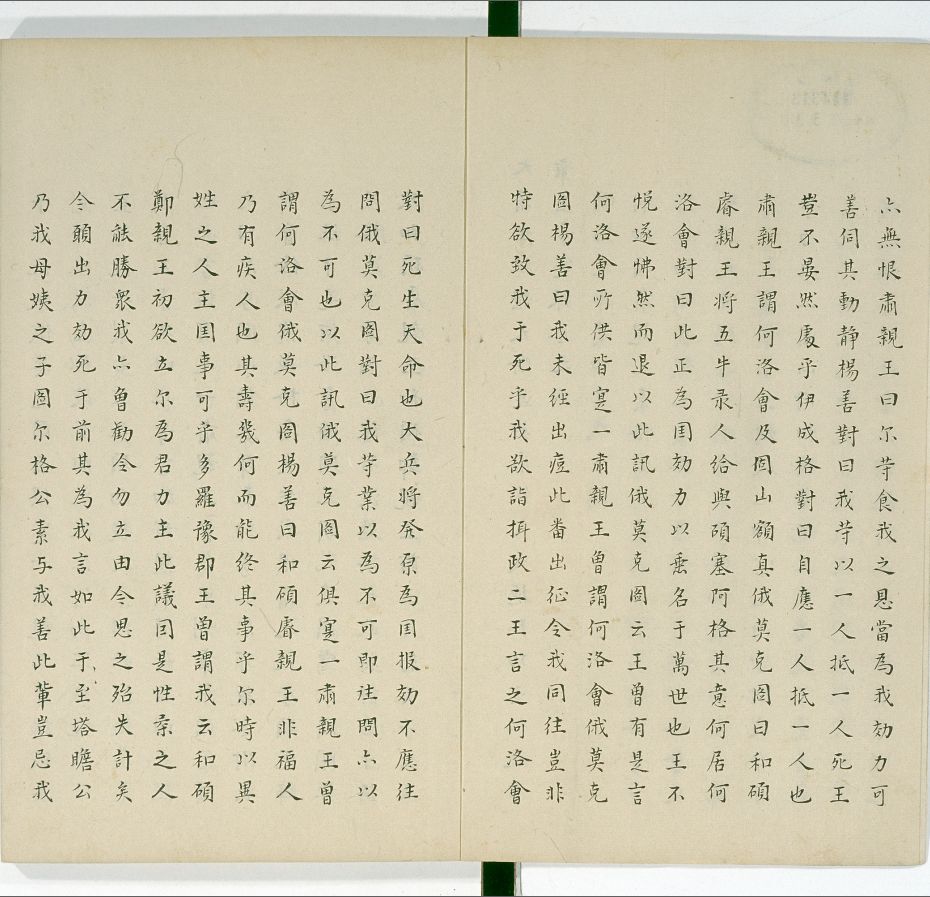 亦無恨肅親王曰尔䓁食我之恩當為我効力可
善伺其動静楊善對曰我䓁以一人抵一人死王
豈不晏然處乎伊成格對曰自應一人抵一人也
肅親王謂何洛會及固山額真俄莫克圖曰和碩
睿親王将五牛录人給與碩塞阿格其意何居何
洛會對曰此正為国効力以垂名于萬世也王不
悦遂怫然而退以此訊俄莫克圖云王曾有是言
何洛會所供皆寔一肅親王曾謂何洛會俄莫克
圖楊善曰我未經出痘此番出征令我同往豈非
特欲致我于死乎我欲詣摂政二王言之何洛會
對曰死生天命也大兵将發原為国报効不應往
問俄莫克圖對曰我䓁業以為不可即往問亦以
為不可也以此訊俄莫克圖云俱寔一肅親王曾
謂何洛會俄莫克圖楊善曰和碩睿親王非福人
乃有疾人也其壽幾何而能终其事乎尔時以異
姓之人主国事可乎多羅豫郡王曾謂我云和碩
鄭親王初欲立尔為君力主此議因是性柔之人
不能勝眾我亦曾勸令勿立由今思之殆失計矣
今願出力効死于前其為我言如此于至塔瞻公
乃我母姨之子圖尔格公素与我善此輩豈忌我